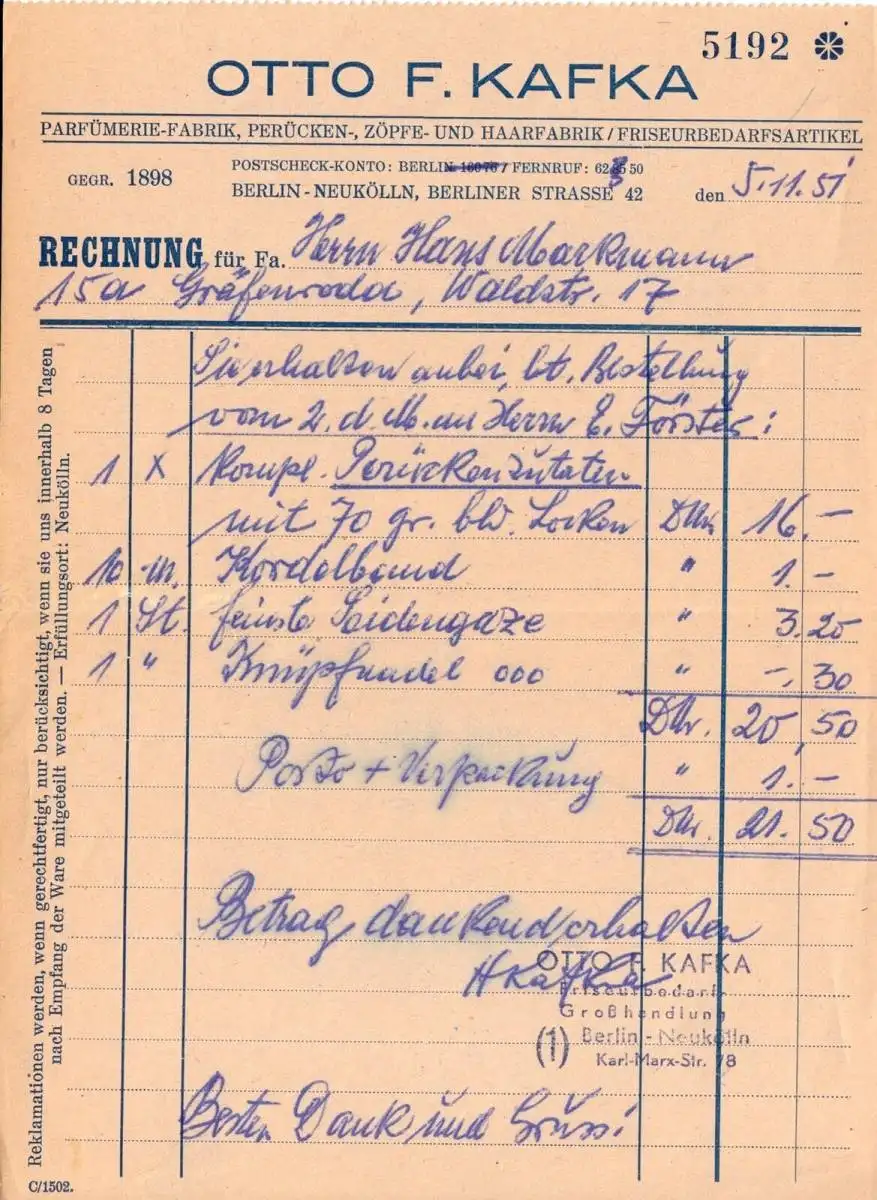 5192
OTTO F. KAFKA
PARFÜMERIE-FABRIK, PERÜCKEN-, ZÖPFE- UND HAARFABRIK / FRISEURBEDARFSARTIKEL
GEGR. 1898
POSTSCHECK-KONTO: BERLIN 16076 / FERNRUF: 62 50
BERLIN-NEUKÖLLN, BERLINER STRASSE 42
den 5.11.51
RECHNUNG für Fa. Herrn Hans Markmann
15a Gräfenroda, Waldstr. 17
Sie erhalten anbei, lt. Bestellung
vom 2. d. M. an Herrn E. Förster:
1 x kompl. Perückenzutaten
mit 70 gr. bld. Locken DMr. 16.–
10 m. Kordelband " 1.–
1 St. feinste Seidengaze " 3.20
1 " Knüpfnadel 000 " –.30
DMr. 20,50
Porto + Verpackung " 1.–
DMr. 21.50
Betrag dankend erhalten
HKafka
OTTO F. KAFKA
Friseurbedarf-
Großhandlung
(1) Berlin-Neukölln
Karl-Marx-Str. 78
Besten Dank und Gruss!
Reklamationen werden, wenn gerechtfertigt, nur berücksichtigt, wenn sie uns innerhalb 8 Tagen
nach Empfang der Ware mitgeteilt werden. — Erfüllungsort: Neukölln.
C/1502.